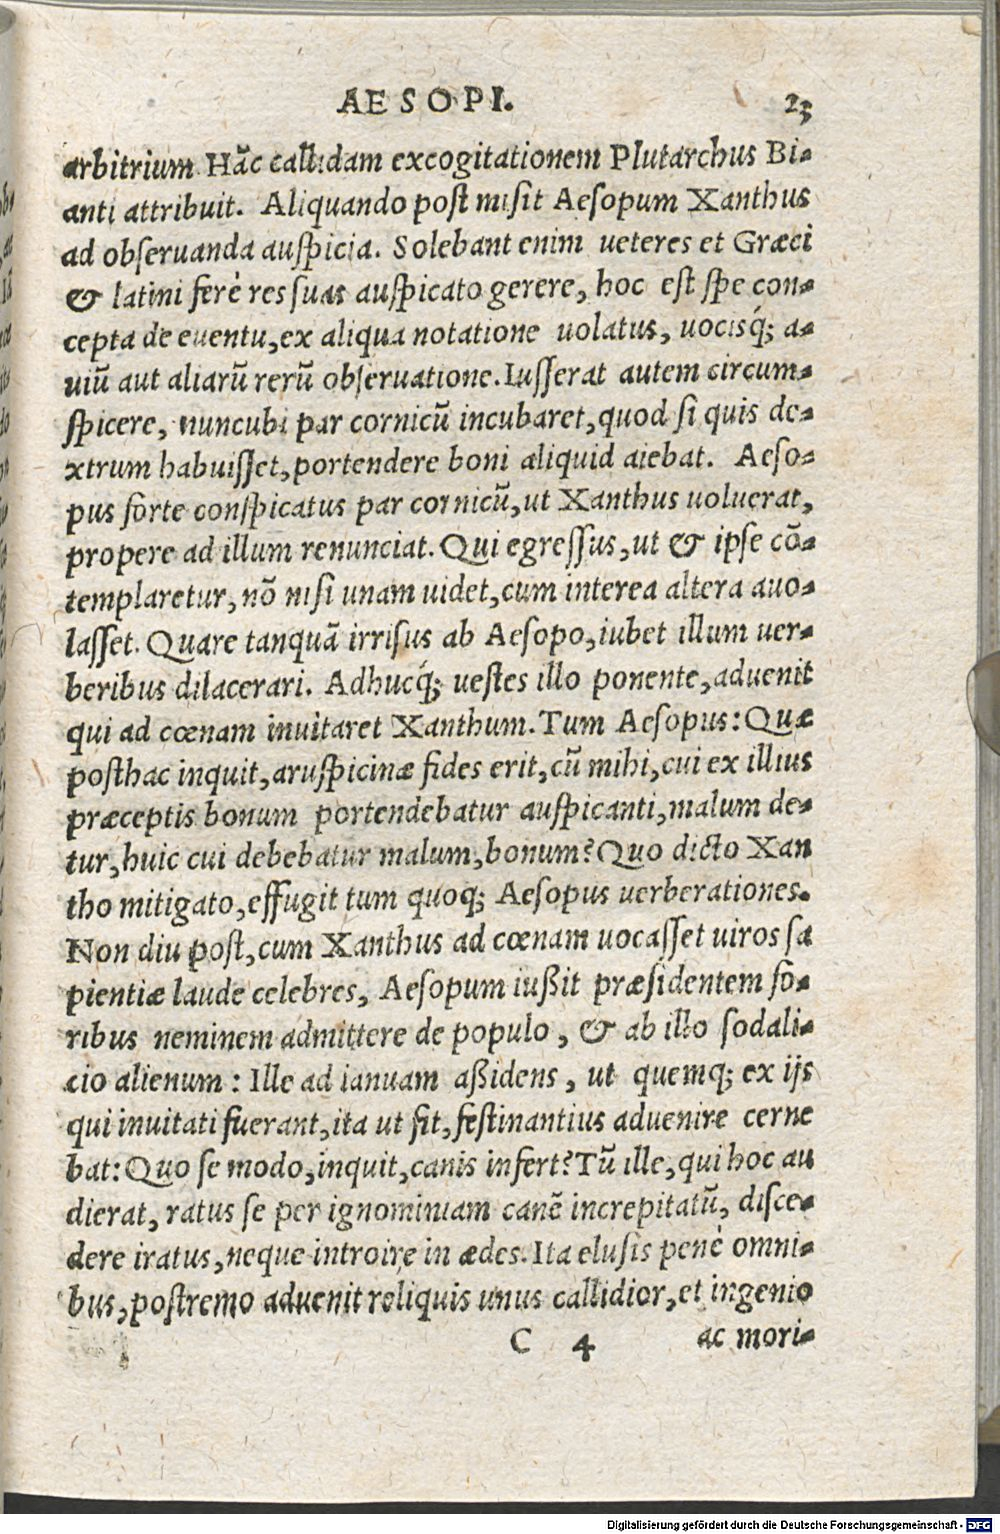 AESOPI. 23
arbitrium Hāc callidam excogitationem Plutarchus Bi-
anti attribuit. Aliquando poſt miſit Aeſopum Xanthus
ad obſeruanda auſpicia. Solebant enim ueteres et Græci
& latini ferè res ſuas auſpicato gerere, hoc eſt ſpe con-
cepta de euentu, ex aliqua notatione uolatus, uocisq́; a-
uiū aut aliarū rerū obſeruatione. Iuſſerat autem circum-
ſpicere, nuncubi par cornicū incubaret, quod ſi quis de-
xtrum habuiſſet, portendere boni aliquid aiebat. Aeſo-
pus forte conſpicatus par cornicū, ut Xanthus uoluerat,
propere ad illum renunciat. Qui egreſſus, ut & ipſe cō-
templaretur, nō niſi unam uidet, cum interea altera auo-
laſſet. Quare tanquā irriſus ab Aeſopo, iubet illum uer-
beribus dilacerari. Adhucq́; ueſtes illo ponente, aduenit
qui ad cœnam inuitaret Xanthum. Tum Aeſopus: Quæ
poſthac inquit, aruſpicinæ fides erit, cū mihi, cui ex illius
præceptis bonum portendebatur auſpicanti, malum de-
tur, huic cui debebatur malum, bonum? Quo dicto Xan
tho mitigato, effugit tum quoq; Aeſopus uerberationes.
Non diu poſt, cum Xanthus ad cœnam uocaſſet uiros ſa
pientiæ laude celebres, Aeſopum iußit præſidentem fo-
ribus neminem admittere de populo, & ab illo ſodali-
cio alienum: Ille ad ianuam aßidens, ut quemq; ex ijs
qui inuitati fuerant, ita ut fit, feſtinantius aduenire cerne
bat: Quo ſe modo, inquit, canis infert? Tū ille, qui hoc au
dierat, ratus ſe per ignominiam canē increpitatū, diſce-
dere iratus, neque introire in ædes. Ita eluſis penè omni-
bus, poſtremo aduenit reliquis unus callidior, et ingenio
C 4 ac mori-
Digitalisierung gefördert durch die Deutsche Forschungsgemeinschaft - DFG